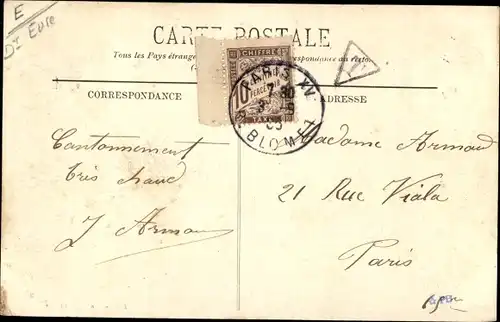 E
Dt Eure
CARTE POSTALE
Tous les Pays étrange correspondance au recto.
CORRESPONDANCE
ADRESSE
CHIFFRE
10
PERCE
TAXE
PARIS XV
7 30
BLOMET
T
Cantonnement
très chaud
J Arman
Madame Armand
21 Rue Viala
Paris
15me